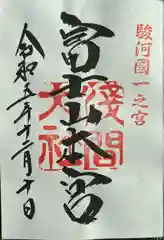 駿河國一之宮
富士山本宮
淺間
大社
令和五年十二月十日